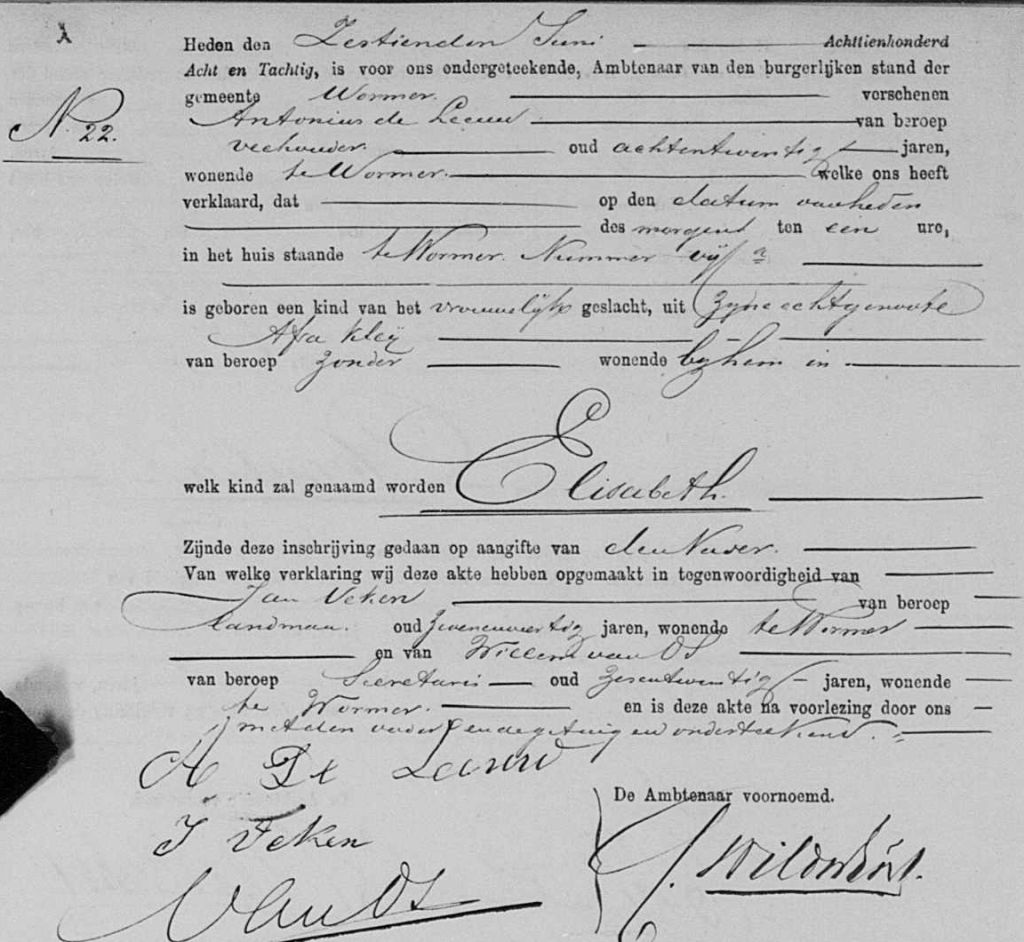 Heden den Zestienden Juni Achttienhonderd
Acht en Tachtig, is voor ons ondergeteekende, Ambtenaar van den burgerlijken stand der
gemeente Wormer. verschenen
N. 22.
Antonius de Leeuw van beroep
veehouder oud achtentwintig jaren,
wonende te Wormer. welke ons heeft
verklaard, dat op den datum van heden
des morgens ten een ure,
in het huis staande te Wormer Nummer vijf a
is geboren een kind van het vrouwelijk geslacht, uit Zyne echtgenoote
Afra Kleij
van beroep zonder wonende by hem in
welk kind zal genaamd worden Elisabeth.
Zijnde deze inschrijving gedaan op aangifte van den Vader.
Van welke verklaring wij deze akte hebben opgemaakt in tegenwoordigheid van
Jan Veken van beroep
Landman. oud jaren, wonende te Wormer
en van Willem van Os
van beroep Secretaris oud Zesentwintig jaren, wonende
te Wormer. en is deze akte na voorlezing door ons
met den vader en de getuigen onderteekend.
A De Leeuw
De Ambtenaar voornoemd.
J Veken
Van Os